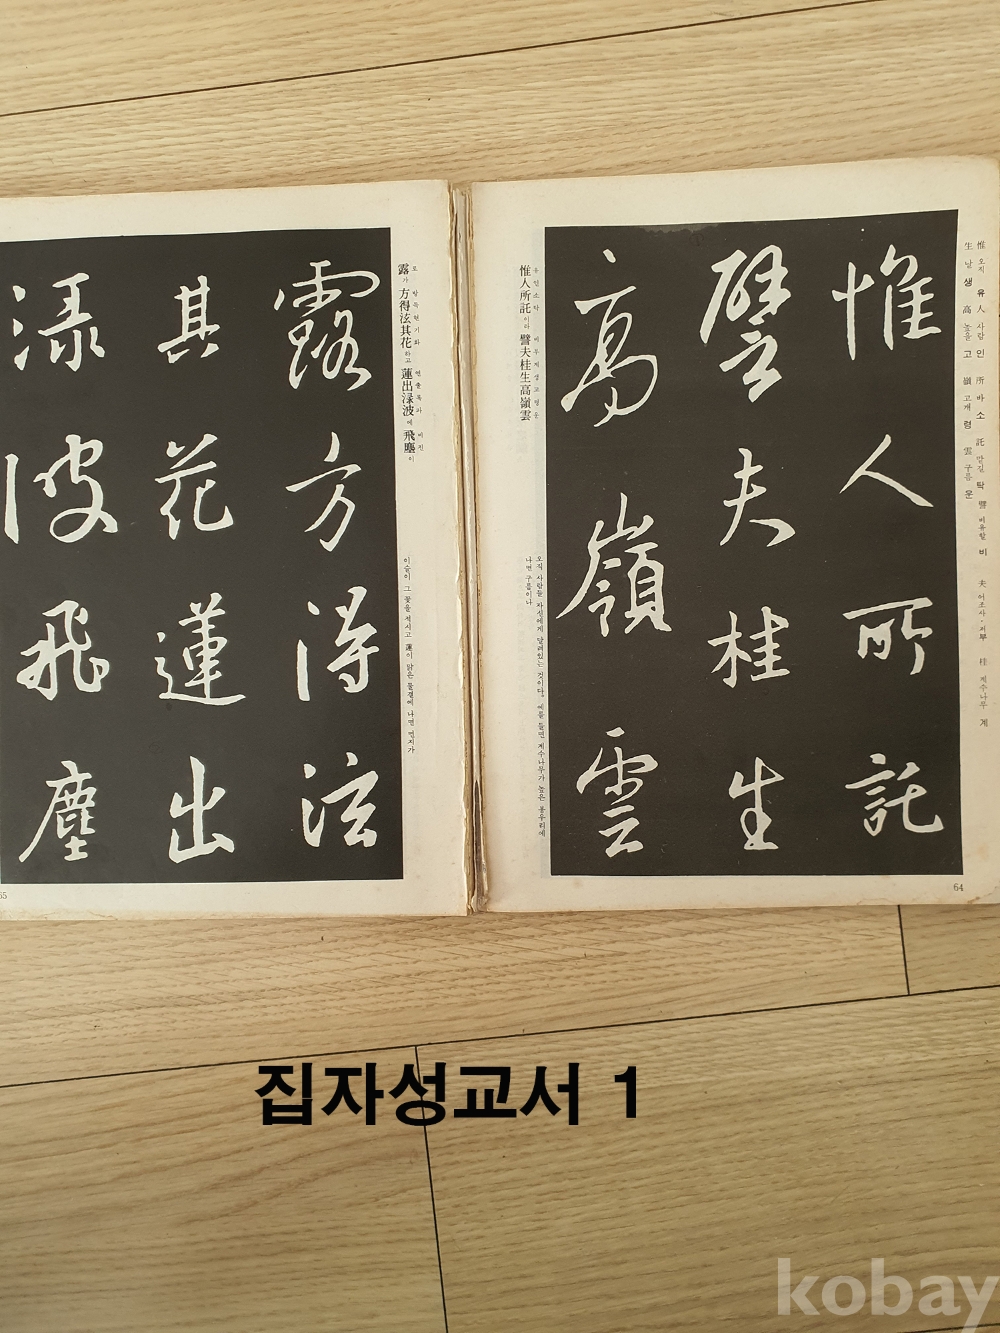 惟 오직 유 人 사람 인 所 바 소 託 맡길 탁 譬 비유할 비 夫 어조사·저 부 桂 계수나무 계
生 날 생 高 높을 고 嶺 고개 령 雲 구름 운
惟人所託
譬夫桂生
高嶺雲
惟人所託이라 譬夫桂生高嶺雲
유인소탁 비부계생고령운
오직 사람들 자신에게 달려있는 것이다. 예를 들면 계수나무가 높은 봉우리에
나면 구름이나
64
露方得泫
其花蓮出
淥波飛塵
로 방득현기화 연출록파 비진
露가 方得泫其花하고 蓮出淥波에 飛塵이
이슬이 그 꽃을 적시고 蓮이 맑은 물결에 나면 먼지가
65
집자성교서 1
kobay